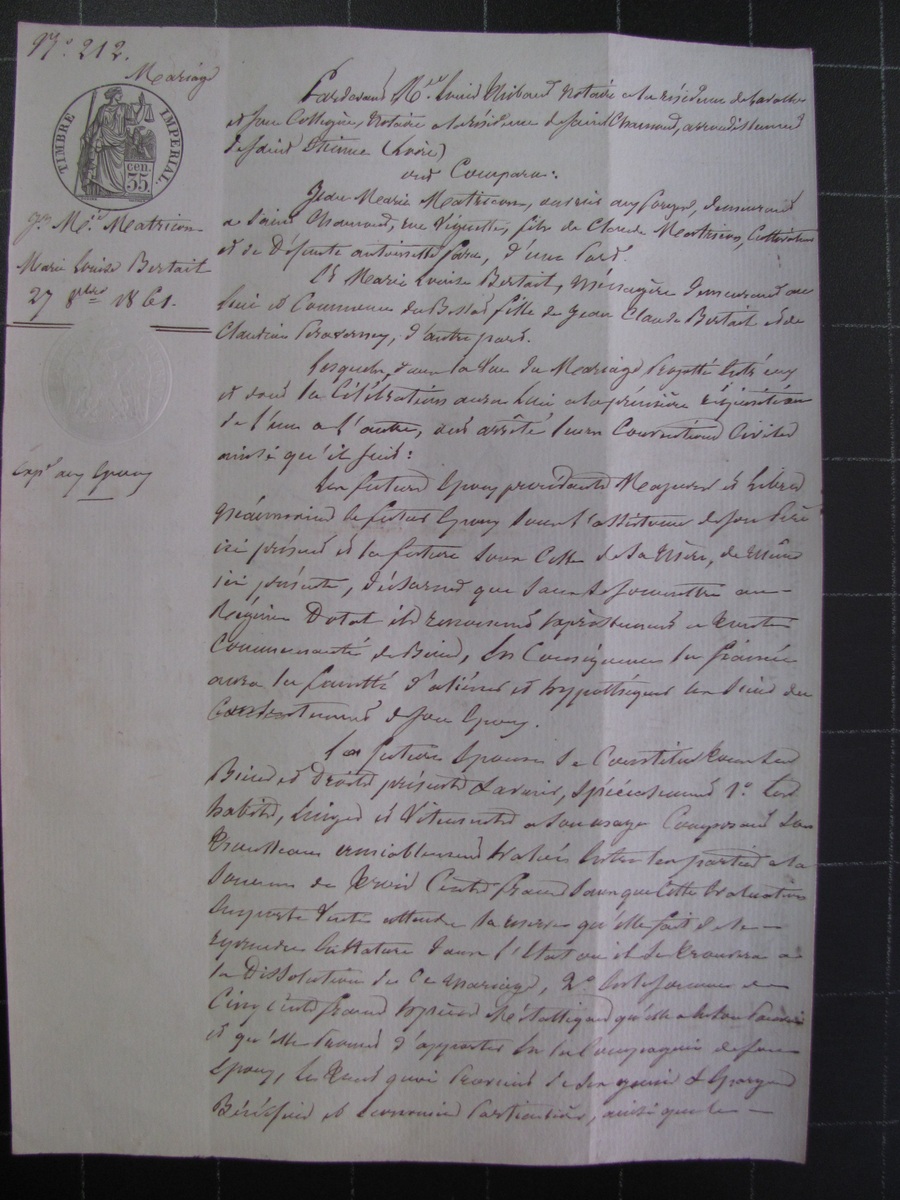 N.° 212.
Mariage
TIMBRE IMPERIAL.
35 cen.
Jn Me Matricon
Marie Louise Bertait
27 8bre 1861.
Expn aux Epoux
Pardevant Me Louis Notaire à la résidence de
et son Collègue, Notaire à la résidence de Saint Chamond, arrondissement
de Saint Etienne (Loire)
ont Comparu:
Jean Marie Matricon, ouvrier aux forges, demeurant
à Saint Chamond, rue fils de Claude Matricon, Cultivateur
et de Défunte antoinette d'une Part.
Et Marie Louise Bertait, Ménagère demeurant au
lieu et Commune du fille de Jean Claude Bertait et de
Claudine d'autre part.
Lesquels, dans la Vue du Mariage Projetté Entr'eux
et dont la Célébration aura Lieu à la première réquisition
de l'un à l'autre, ont arrêté leurs Conventions Civiles
ainsi qu'il suit:
Les futurs Epoux procédants Majeurs et Libres
néanmoins le futur Epoux sous l'assistance de son Père
ici présent et la future sous Celle de sa Mère, de même
ici présente, déclarent que sans se soumettre au
Régime Dotal ils renoncent Expressément à Toute
Communauté de Biens, En Conséquence la fiancée
aura la faculté d'aliéner et hypothéquer ses Biens du
Consentement de son Epoux.
La future Epouse se Constitue Tous ses
Biens et Droits présents & avenir, spécialement 1° Les
habits, Linges et Vêtements à son usage Composant son
Trousseau amiablement Evalués Entre les parties à la
somme de Trois Cents francs sans que Cette Evaluation
Emporte Vente attendu la réserve qu'elle fait de le
reprendre En Nature dans l'Etat où il se trouvera à
la Dissolution de Ce Mariage, 2° Et la somme de
Cinq Cents francs Espèces Métalliques qu'elle a En son Pouvoir
et qu'elle Promet d'apporter En la Compagnie de son
Epoux, Le Tout quoi Provient de ses gains & Epargnes
Bénéfices et Economies Particulières, ainsi que le